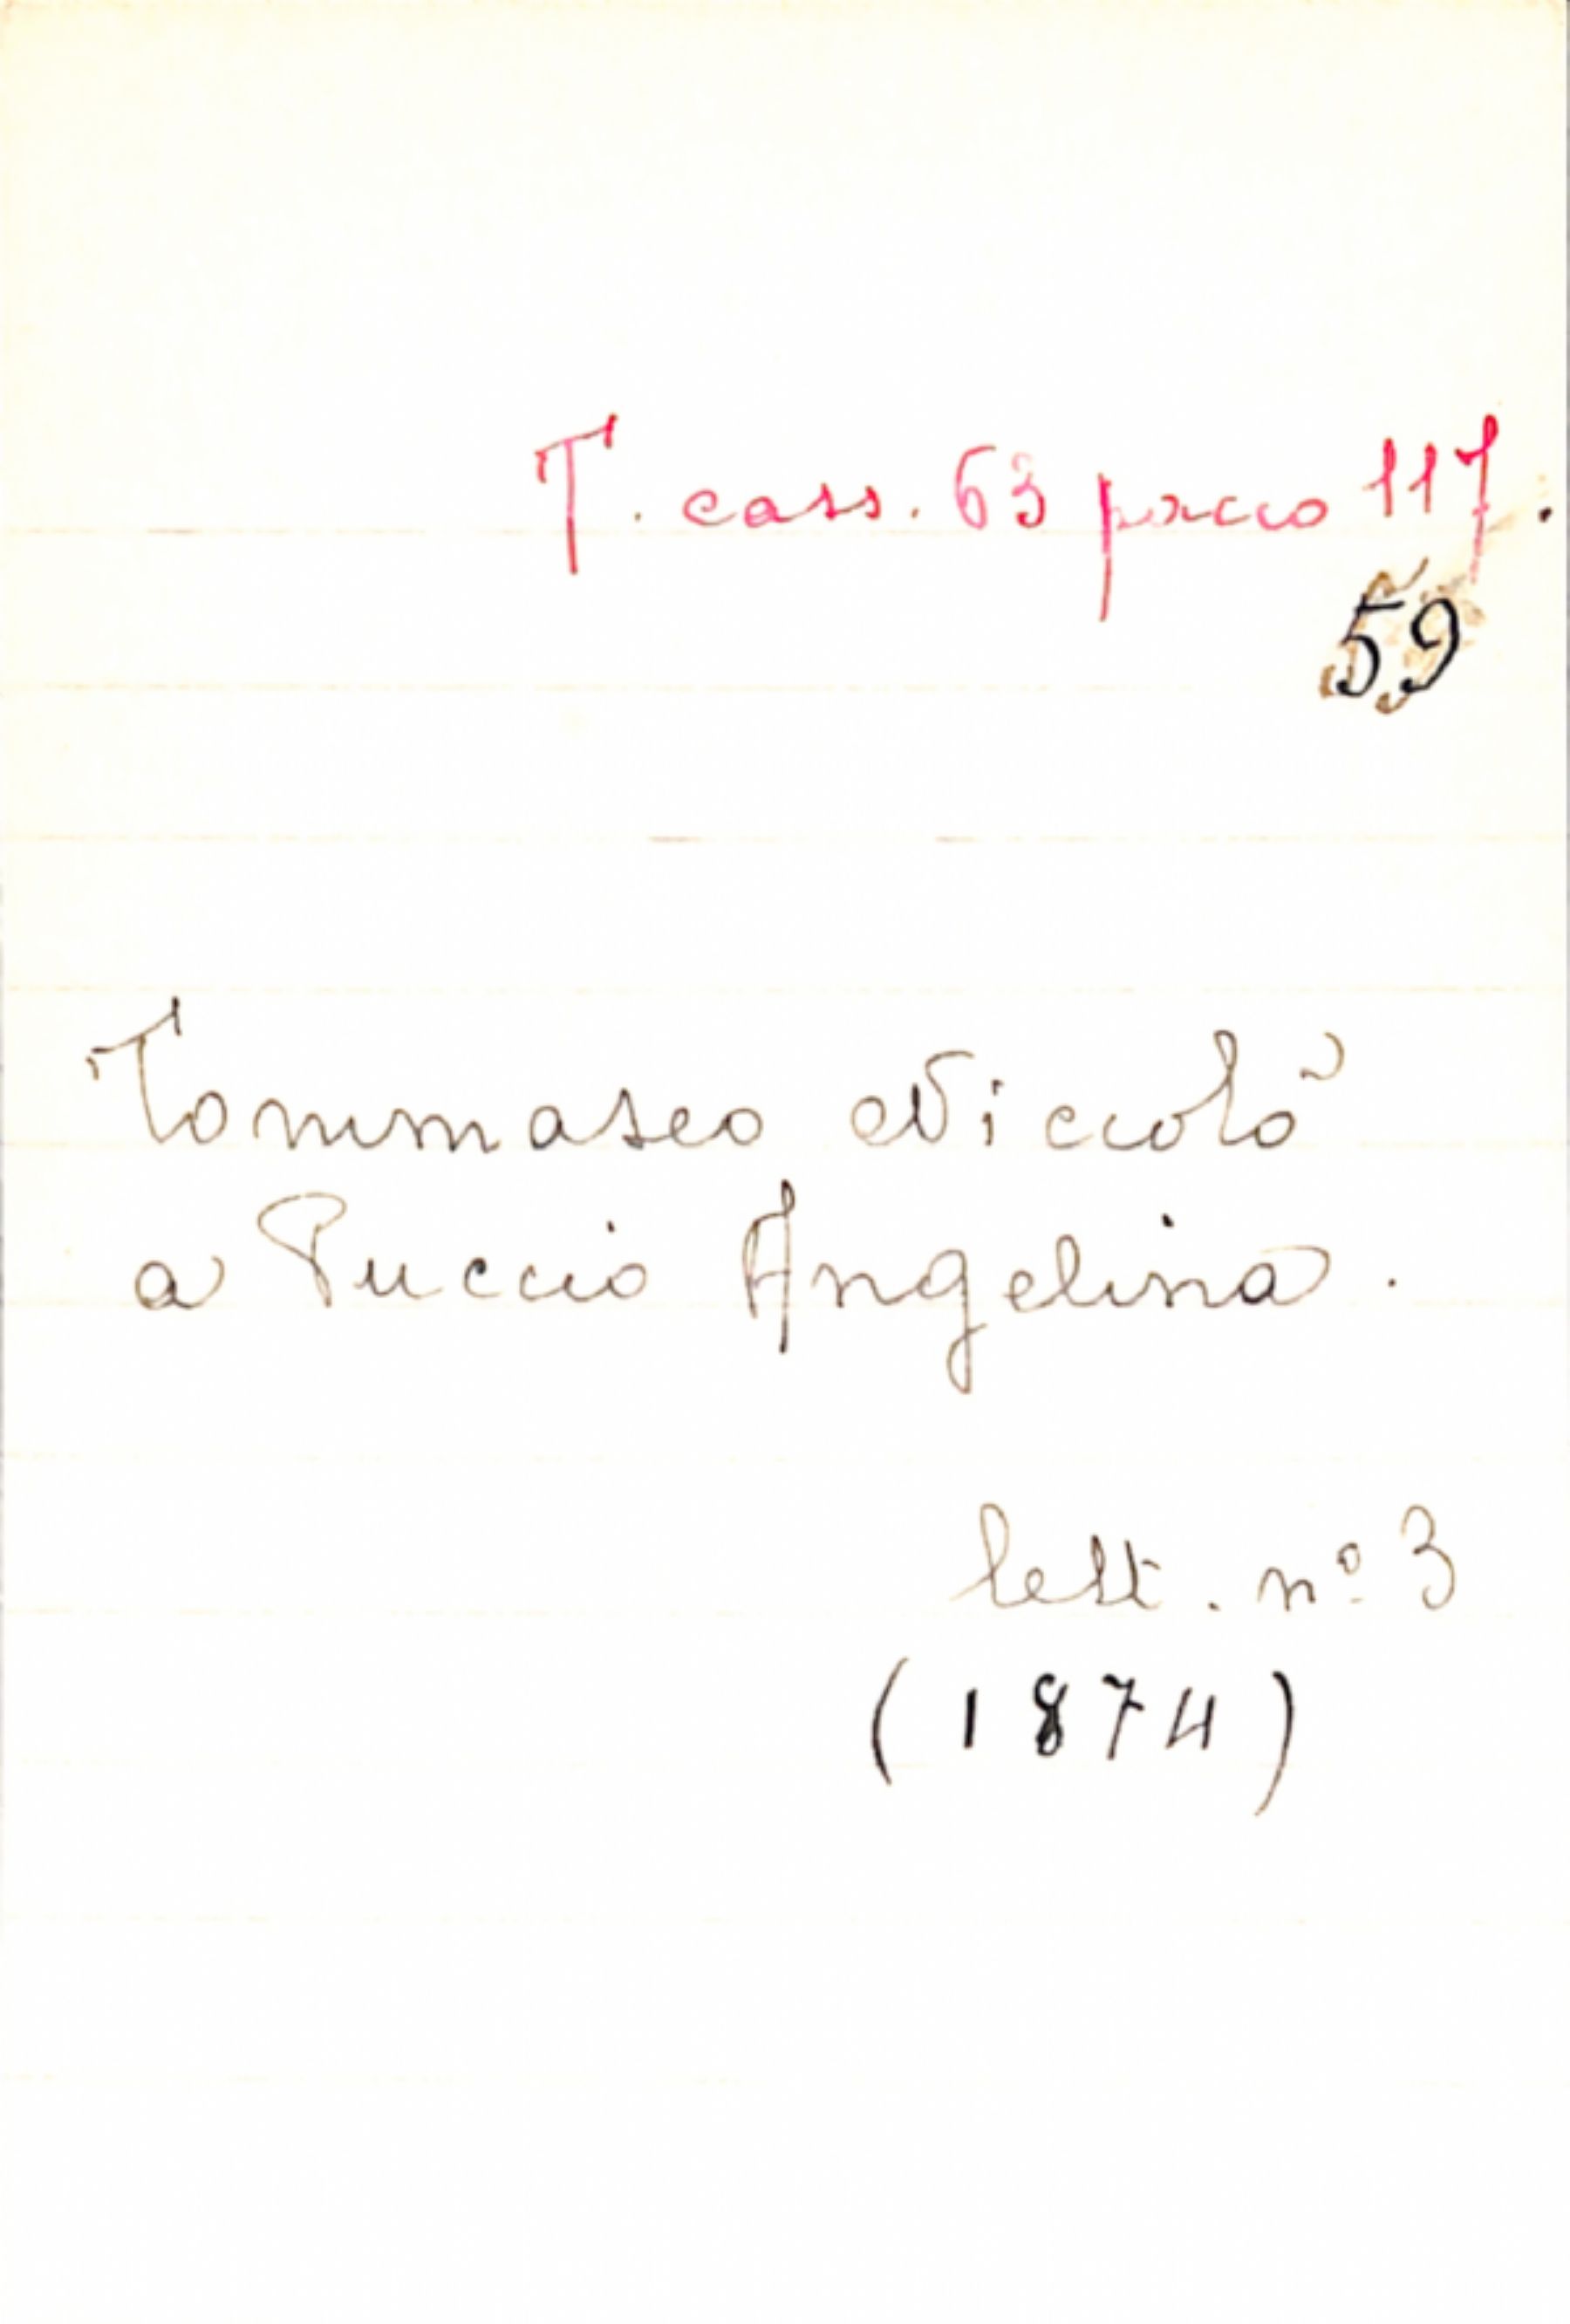 T. cass. 63 pacco 117.
59
Tommaseo Niccolò
a Puccio Angelina.
lett. nº 3
(1874)